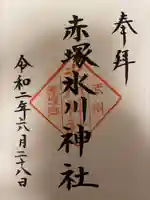 奉拝
赤塚氷川神社
令和二年六月二十八日